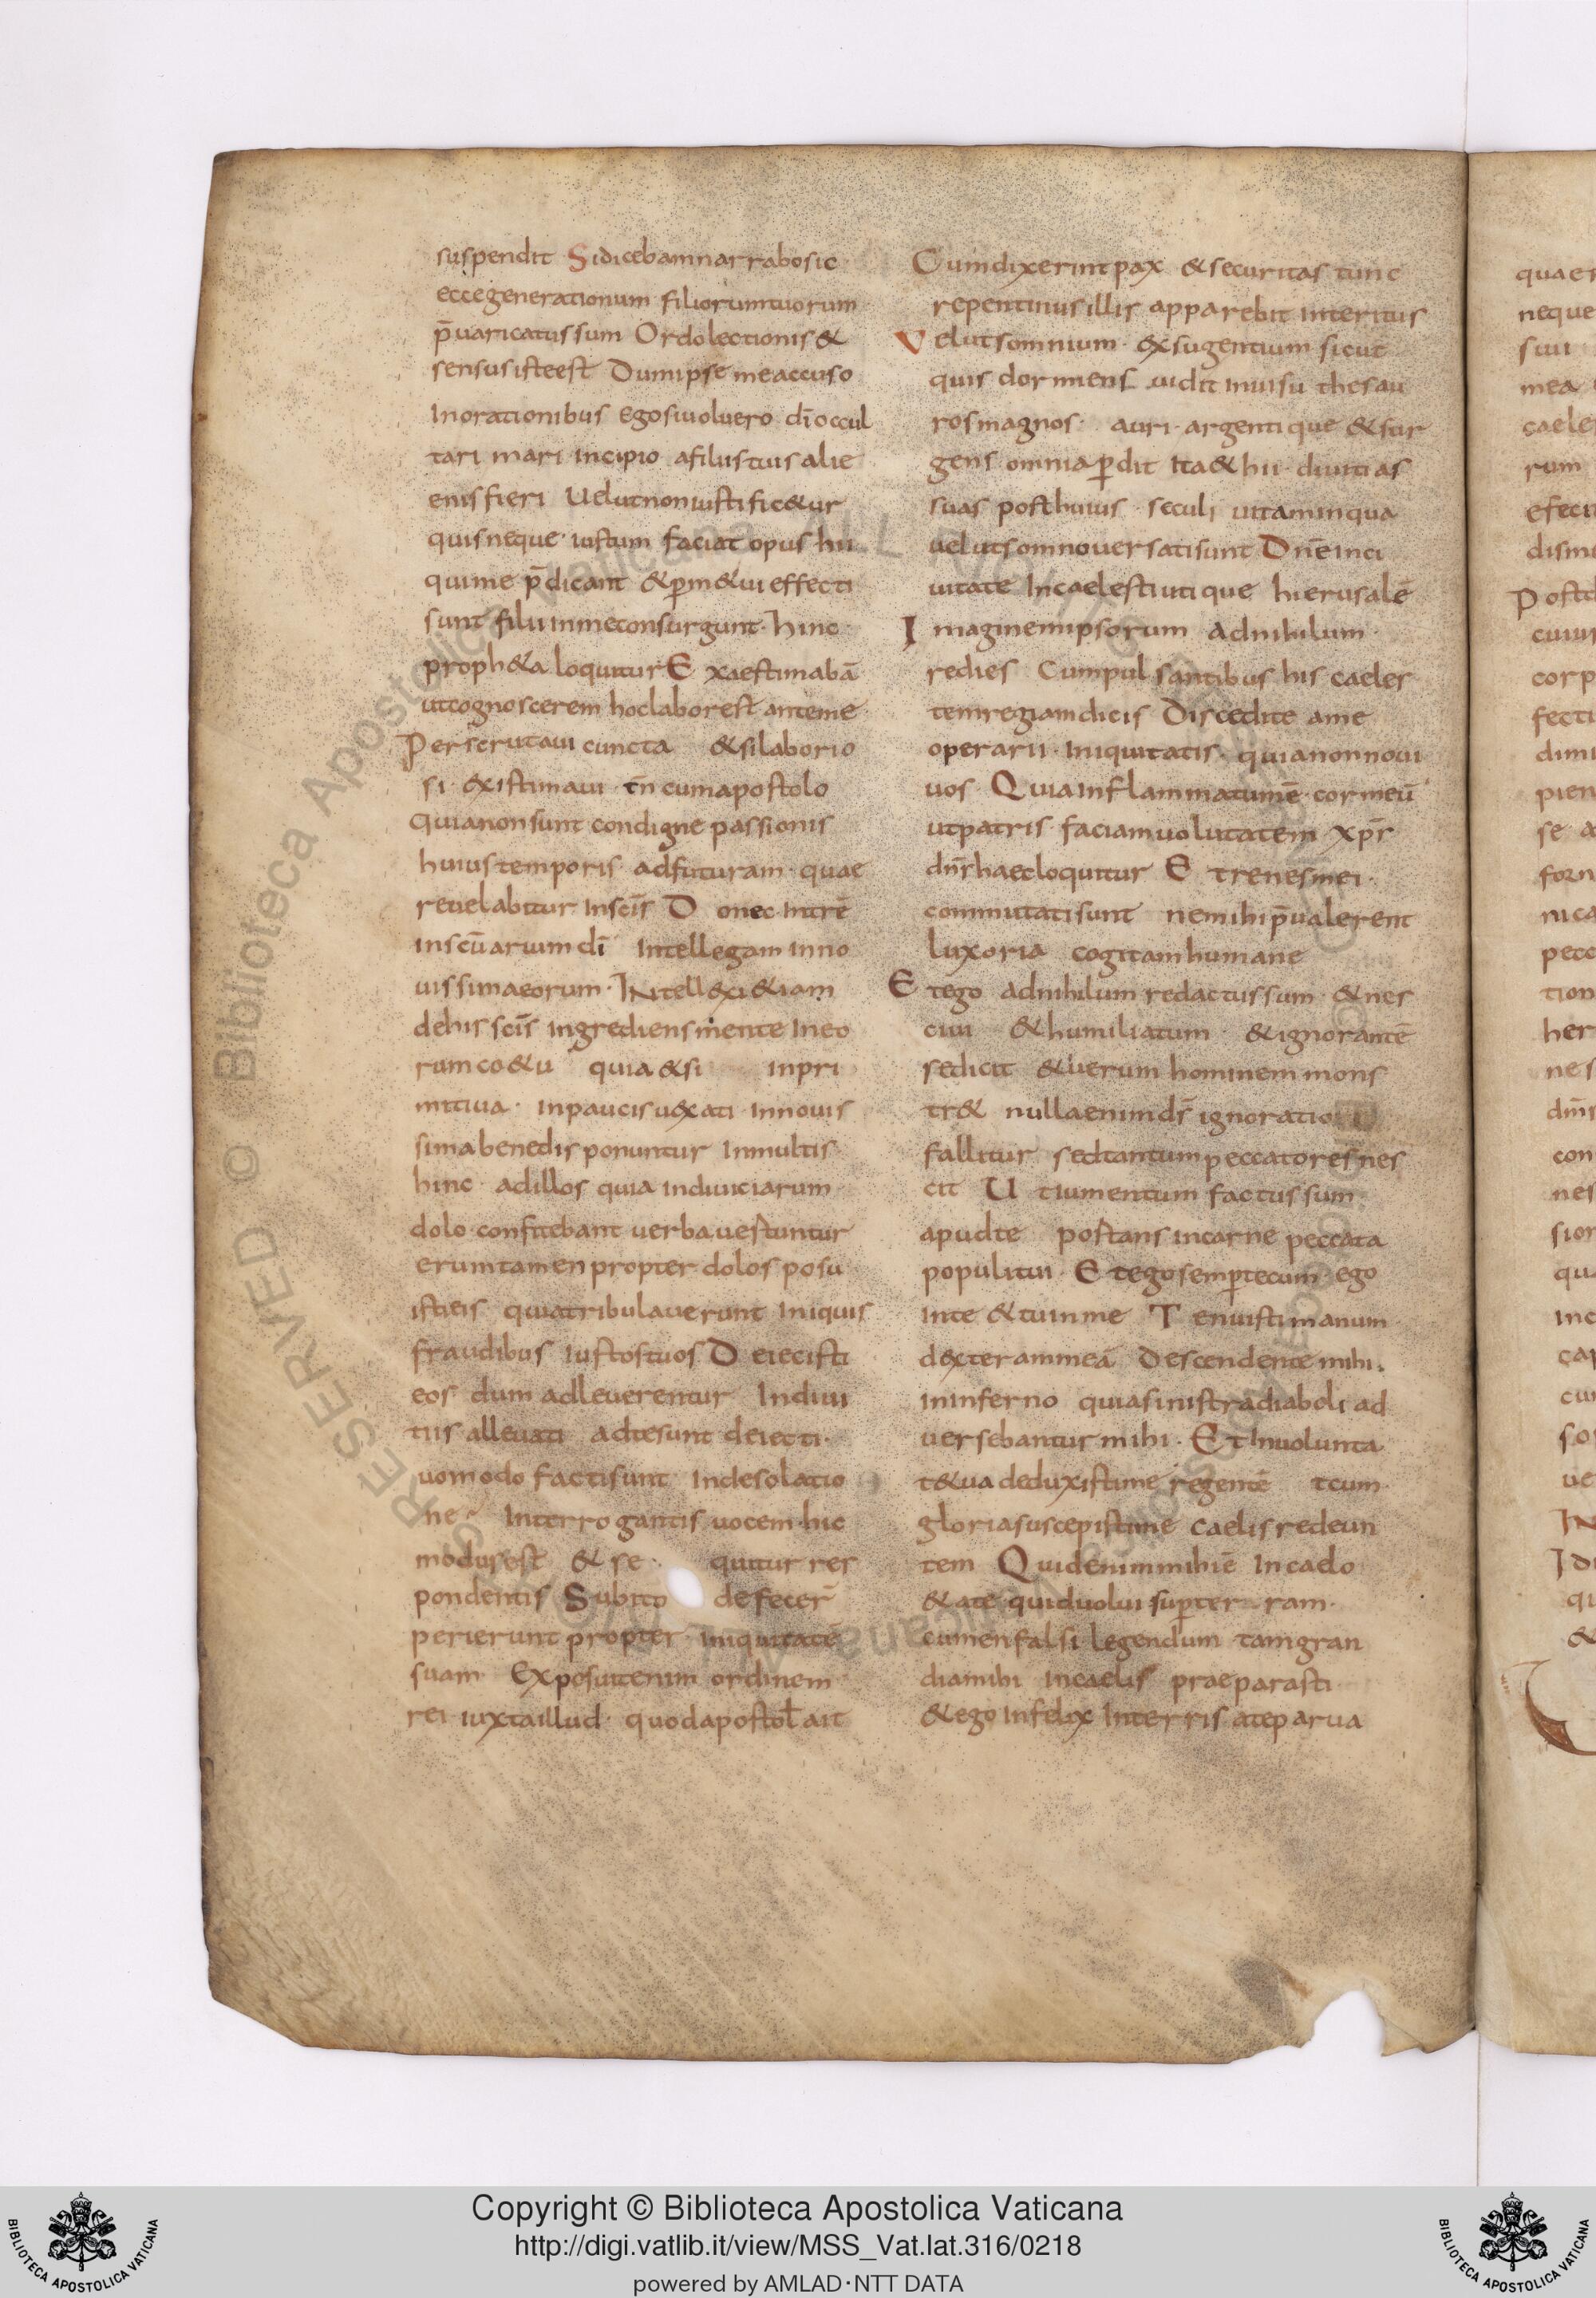 suspendit Sidicebam narrabo sic
ecce generationum filiorum tuorum
p̄uaricatus sum Ordo lectionis &
sensus iste est Dum ipse me accuso
In orationibus ego si uoluero dī occul
tari mari incipio a filiis tuis alie
enis fieri Uelut non iustific&ur
quis neque iustum faciat opus hii
qui me p̄dicant & p̱ m&ui effecti
sunt filii in me consurgunt hinc
proph&a loquitur Exaestimabā
ut cognoscerem hoc labor est ante me
Perscrutaui cuncta & si laborio
si existimaui tn̄ cum apostolo
Quia non sunt condigne passionis
huius temporis ad futuram quae
reuelabitur In scīs Donec Intrē
in scūarium dī Intellegam in no
uissima eorum INtellexi & iam
de his scīs ingrediens mente In eo
rum co&u quia & si in pri
mitiua in paucis uexati In nouis
sima bene disponuntur In multis
hinc ad illos quia induuciarum
dolo confitebant uerba uestuntur
erumtamen propter dolos posu
isti eis qui atribulauerunt Iniquis
fraudibus iustos tuos Deiecisti
eos dum adleuerentur In diui
tiis alleuati ad te sunt deiecti
uomodo facti sunt In desolatio
ne Interrogantis uocem hic
modus est & se quitur res
pondentis Subito defecer̄
perierunt propter iniquitatē
suam Exposuit enim ordinem
rei iuxta illud quod apostoł ait
Cum dixerint pax & securitas tunc
repentinus illis apparebit interitus
Velut somnium exsugentium sicut
quis dormiens uidit in uisu thesau
ros magnos auri argentique & sur
gens omnia p̱dit Ita & hii diuitias
suas post huius seculi uitam in qua
uelut somno uersati sunt Dn̄e in ci
uitate In caelesti utique hierusalē
Imaginem ipsorum ad nihilum
redies Cum pulsantibus his caeles
tem regiam dicis Discedite a me
operarii iniquitatis quia non noui
uos Quia inflammatum ē cor meū
ut patris faciam uolutatem xp̄s
dn̄s haec loquitur Et renes mei
commutati sunt ne mihi p̄ualerent
luxoria cogitam humane
Et ego ad nihilum redactus sum & nes
ciui & humiliatum & ignorantē
se dicit & uerum hominem mons
tr& nulla enim ds̄ ignoratio
fallitur sed tantum peccatores nes
cit Ut iumentum factus sum
apud te postans in carne peccata
populi tui Et ego semp̱ tecum ego
in te & tu in me Tenuisti manum
dexteram meā Descendente mihi
in inferno quia sinistra diaboli ad
uersebantur mihi Et In uolunta
t&ua deduxisti me regentē tcum
gloria suscepisti me caelis redeun
tem Quid enim mihi ē In caelo
& a te quid uolui sup̱ terram
cum enfalsi legendum tam gran
dia mihi in caelis praeparasti
& ego Infelix In terris a te parua
Copyright © Biblioteca Apostolica Vaticana
http://digi.vatlib.it/view/MSS_Vat.lat.316/0218
powered by AMLAD·NTT DATA
BIBLIOTECA APOSTOLICA VATICANA
BIBLIOTECA APOSTOLICA VATICANA